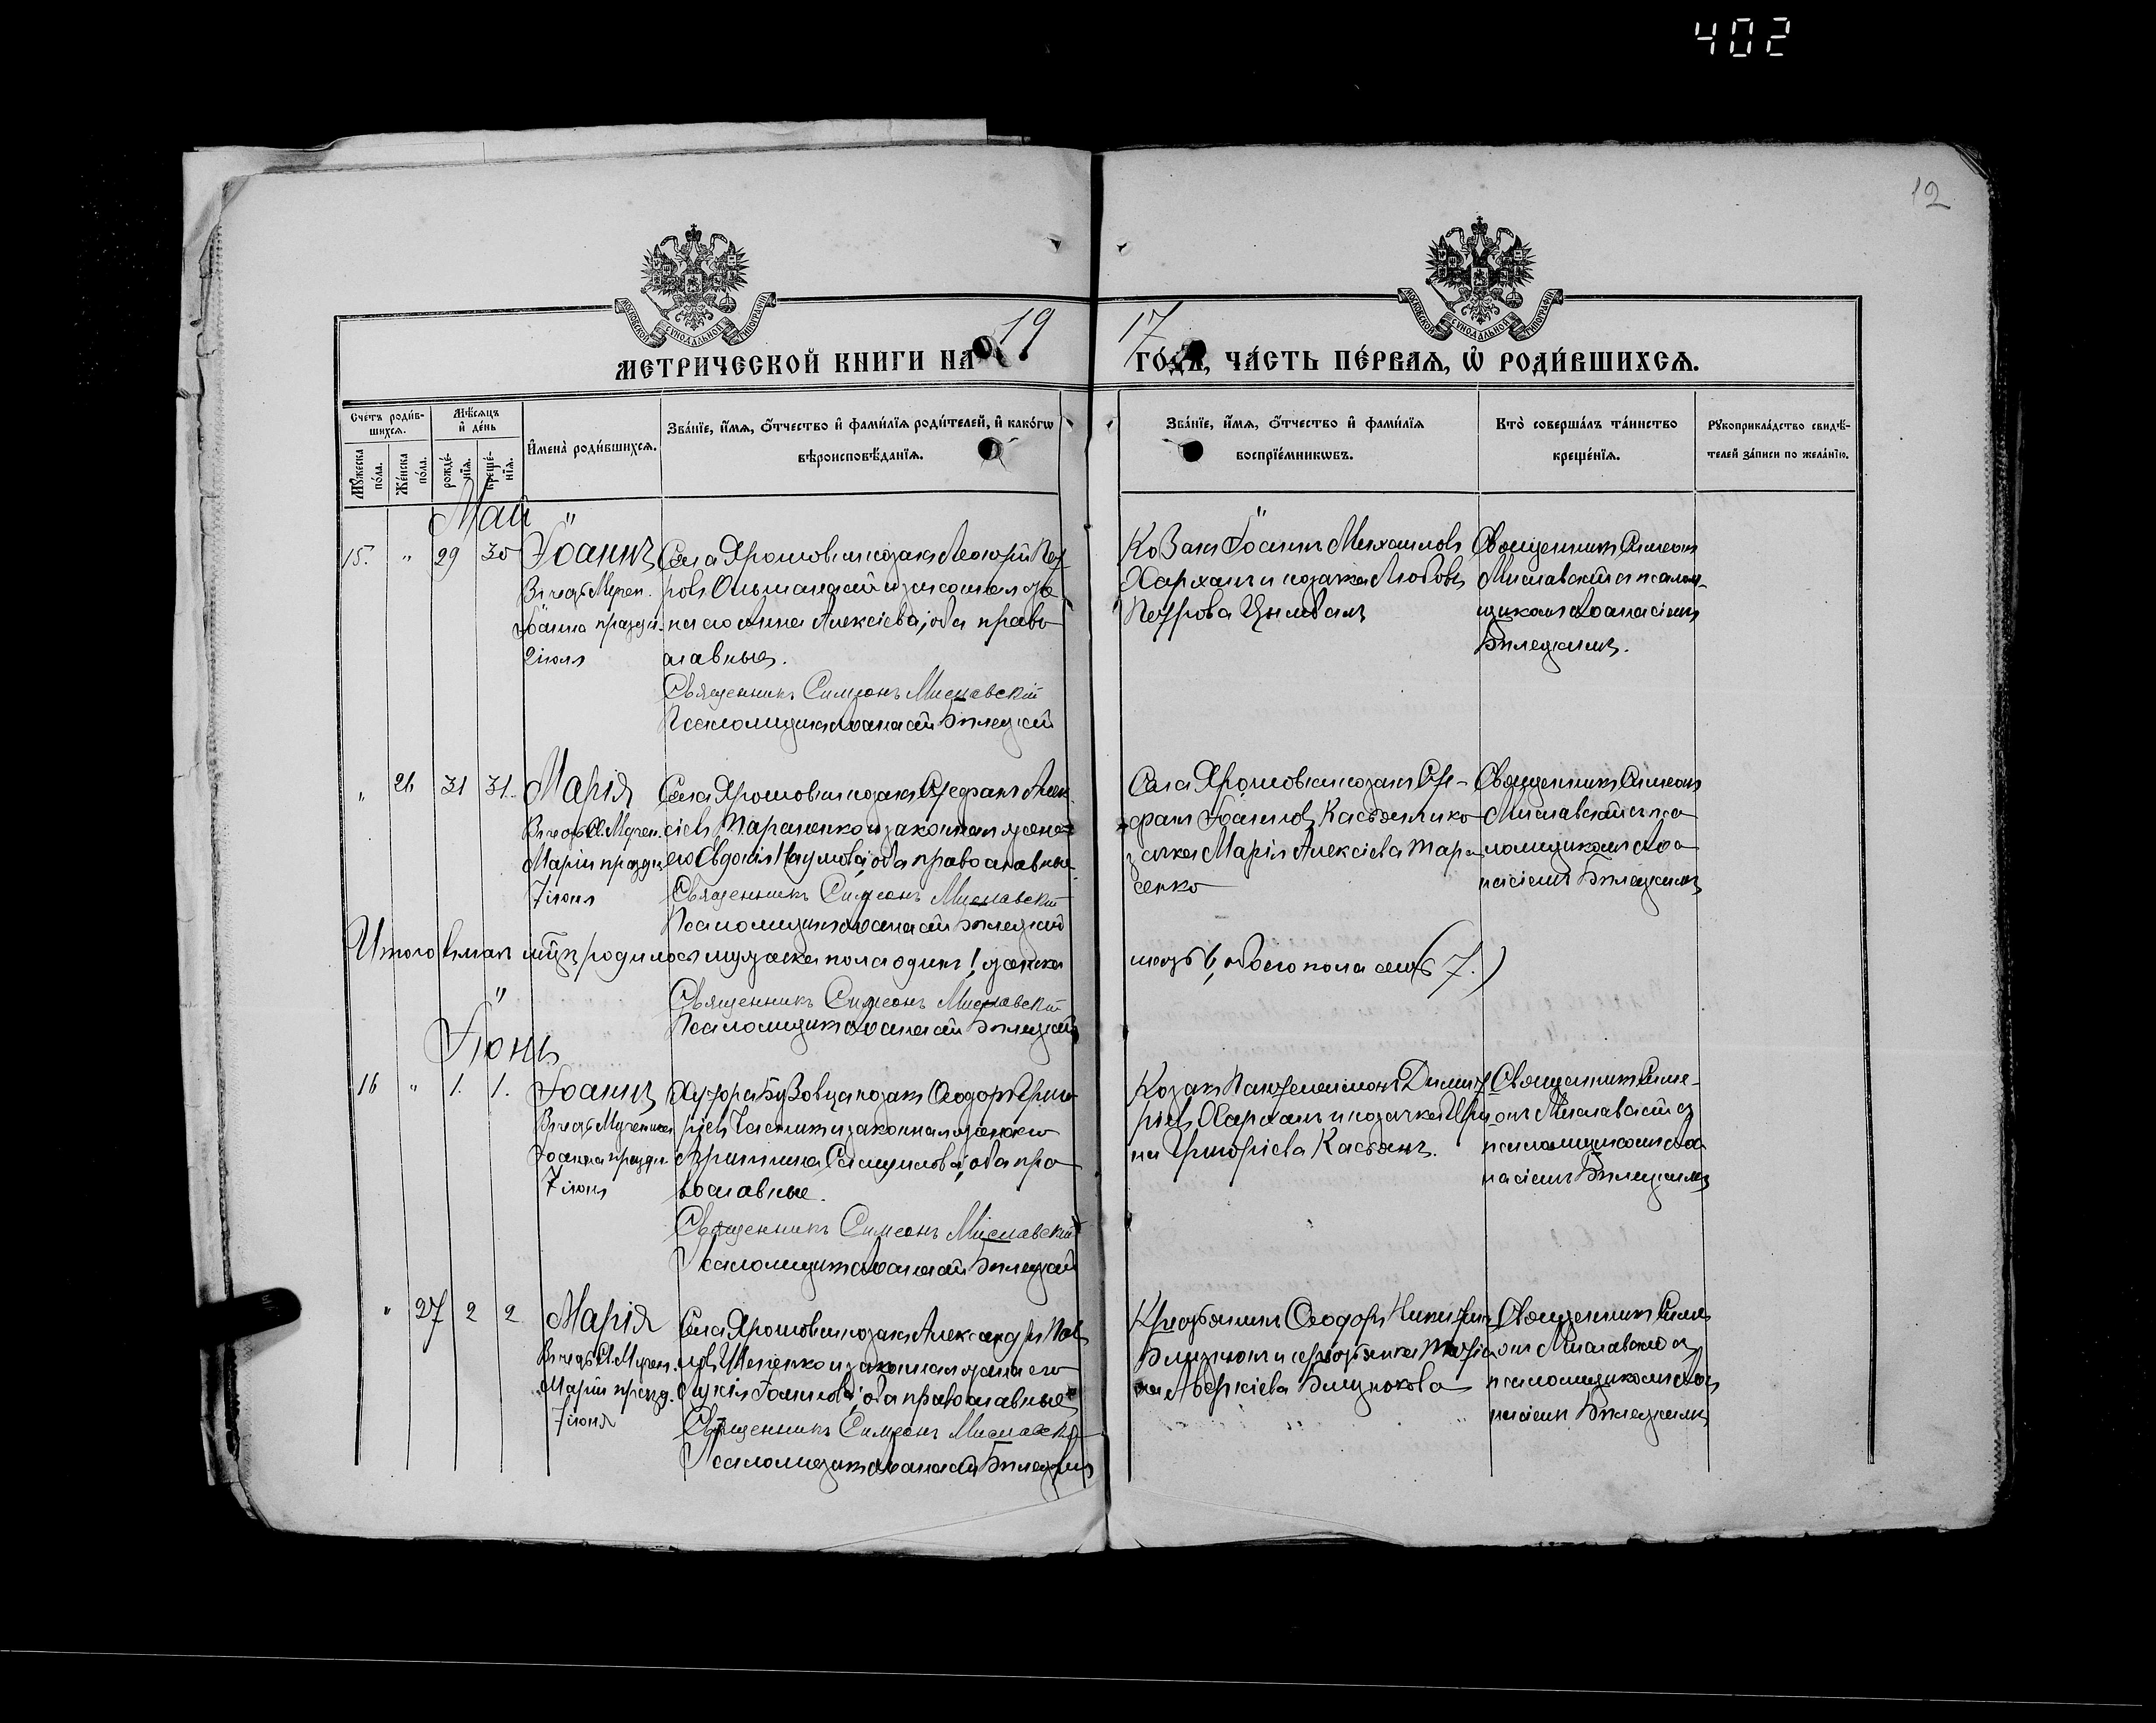 402
12
МОСКОВСКОЙ СУНОДАЛЬНОЙ ТИПОГРАФІИ
МОСКОВСКОЙ СУНОДАЛЬНОЙ ТИПОГРАФІИ
МЕТРИЧЕСКОЙ КНИГИ НА 19
17 ГО́ДА, ЧА́СТЬ ПЕ́РВАЯ, Ѡ РОДИ́ВШИХСЯ.
Счетъ роди́в-
шихся.
Мѣсяцъ
и де́нь
Мꙋжеска
по́ла.
Же́нска
по́ла.
рожде́-
нїя.
креще́-
нїя.
Имена̀ роди́вшихся.
Зва́нїе, и́мя, ѻ́тчество и фами́лїя роди́телей, и како́гѡ
вѣроисповѣ́данїя.
Зва́нїе, и́мя, ѻ́тчество и фами́лїя
воспрїе́мникѡвъ.
Кто̀ соверша́лъ та́инство
креще́нїя.
Рꙋкоприкла́дство свидѣ́-
телей за́писи по жела́нїю.
Май
15. " 29 30 Іоаннъ
Въ честь Мучен.
Іоанна праздн.
2 іюня
Села Ярошовки козакъ Пет
ровъ и законная же
на его Анна Алексіева, оба право
славные.
Священникъ Симеонъ Миславскій
Псаломщикъ Аѳанасій Бѣлецкій
Козакъ Іоаннъ Михаиловъ
Харханъ и козачка Любовь
Петрова Цымбалъ
Священникъ Симеонъ
Миславскій съ псалом-
щикомъ Аѳанасіемъ
Бѣлецкимъ.
" 26 31 31. Марія
Въ честь Св. Мучен.
Маріи праздн.
7 іюня
Села Ярошовки козакъ Стефанъ Алек
сіевъ Тарасенко и законная жена
его Евдокія Наумова, оба православные
Священникъ Симеонъ Миславскій
Псаломщикъ Аѳанасій Бѣлецкій
Села Ярошовки козакъ Сте-
фанъ Іоанновъ Касьян и ко
зачка Марія Алексіева Тара
сенко
Священникъ Симеонъ
Миславскій съ пса
ломщикомъ Аѳа
насіемъ Бѣлецкимъ
Итого въ маѣ мцѣ родилось мужеска пола одинъ 1, женска
шесть 6, обоего пола семь (7.)
Священникъ Симеонъ Миславскій
Псаломщикъ Аѳанасій Бѣлецкій
Іюнь
16 " 1. 1. Іоаннъ
Въ честь Мученика
Іоанна праздн.
7 іюня
Хутора козакъ Ѳеодоръ Григо
ріевъ и законная жена его
Самуилова, оба пра
вославные.
Священникъ Симеонъ Миславскій
Псаломщикъ Аѳанасій Бѣлецкій
Козакъ Пантелеимонъ Димит
ріевъ Харханъ и козачка Ири
на Григоріева Касьянъ.
Священникъ Симе-
онъ Миславскій съ
псаломщикомъ Аѳа
насіемъ Бѣлецкимъ
" 27 2 2 Марія
Въ честь Св. Мучен.
Маріи празд.
7 іюня
Села Ярошовки козакъ Александръ Пав
ловъ Шепенко и законная жена его
Лукія Іоаннова, оба православные
Священникъ Симеонъ Миславскій
Псаломщикъ Аѳанасій Бѣлецкій
Крестьянинъ Ѳеодоръ Никитинъ
и крестьянка
Аверкіева
Священникъ Симе
онъ Миславскій съ
псаломщикомъ Аѳа
насіемъ Бѣлецкимъ